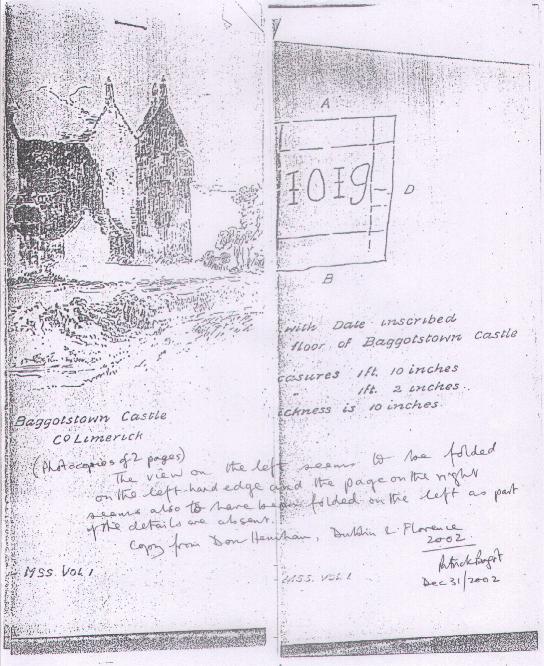 Baggotstown Castle
Co Limerick
A
1019
D
B
with Date inscribed
floor of Baggotstown Castle
easures 1ft. 10 inches
" 1ft. 2 inches.
ickness is 10 inches.
(Photocopies of 2 pages)
The view on the left seems to be folded
on the left-hand edge and the page on the right
seems also to have been folded on the left as part
of the details are absent.
Copy from Don Henihan, Dublin & Florence
2002
MSS. VOL 1
MSS. VOL 1
Dec 31/2002